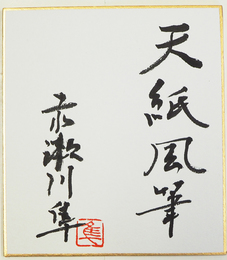 天紙風筆
赤瀬川隼
隼